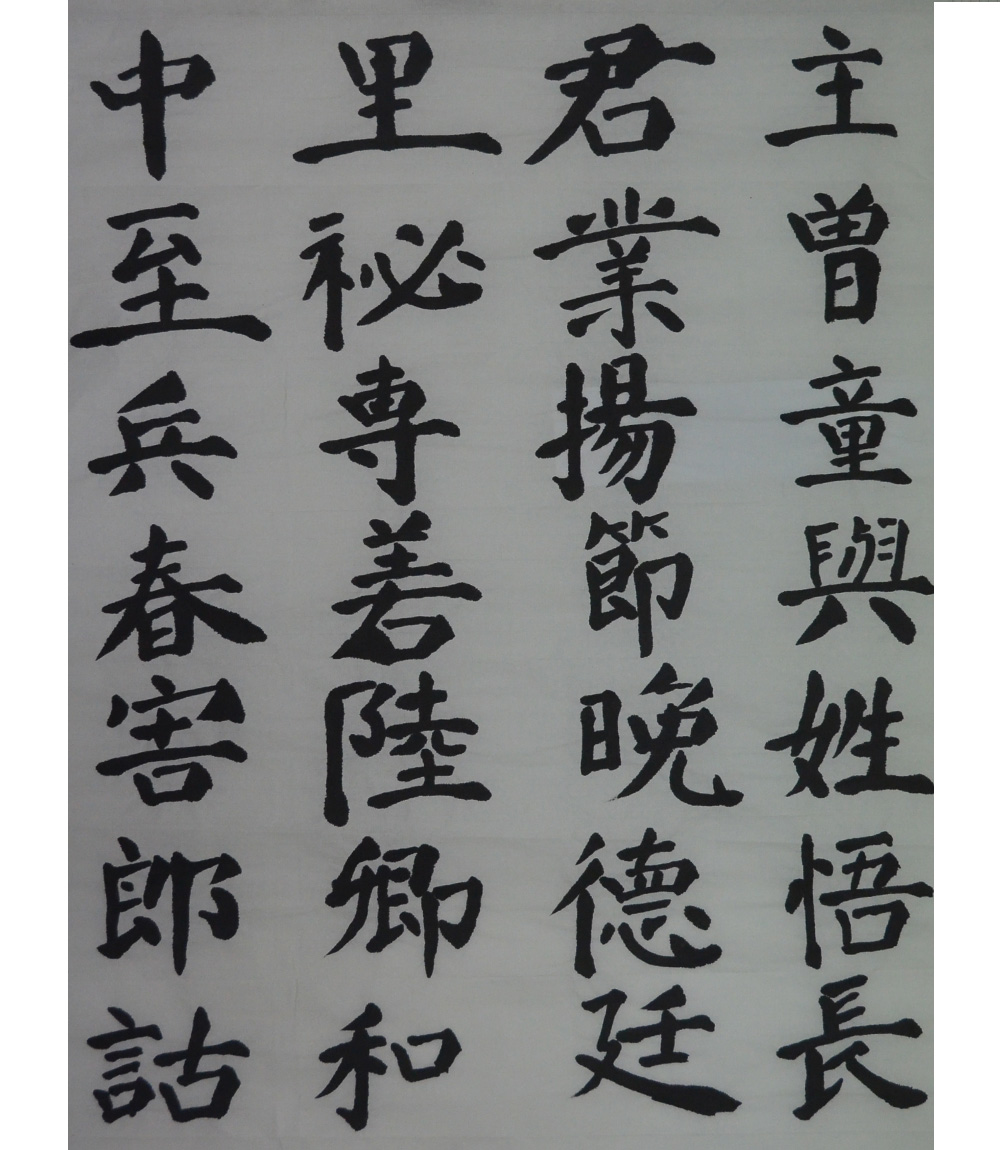 主曽童與姓悟長
君業揚節晚德廷
里祕専善陸卿和
中至兵春害郎詁